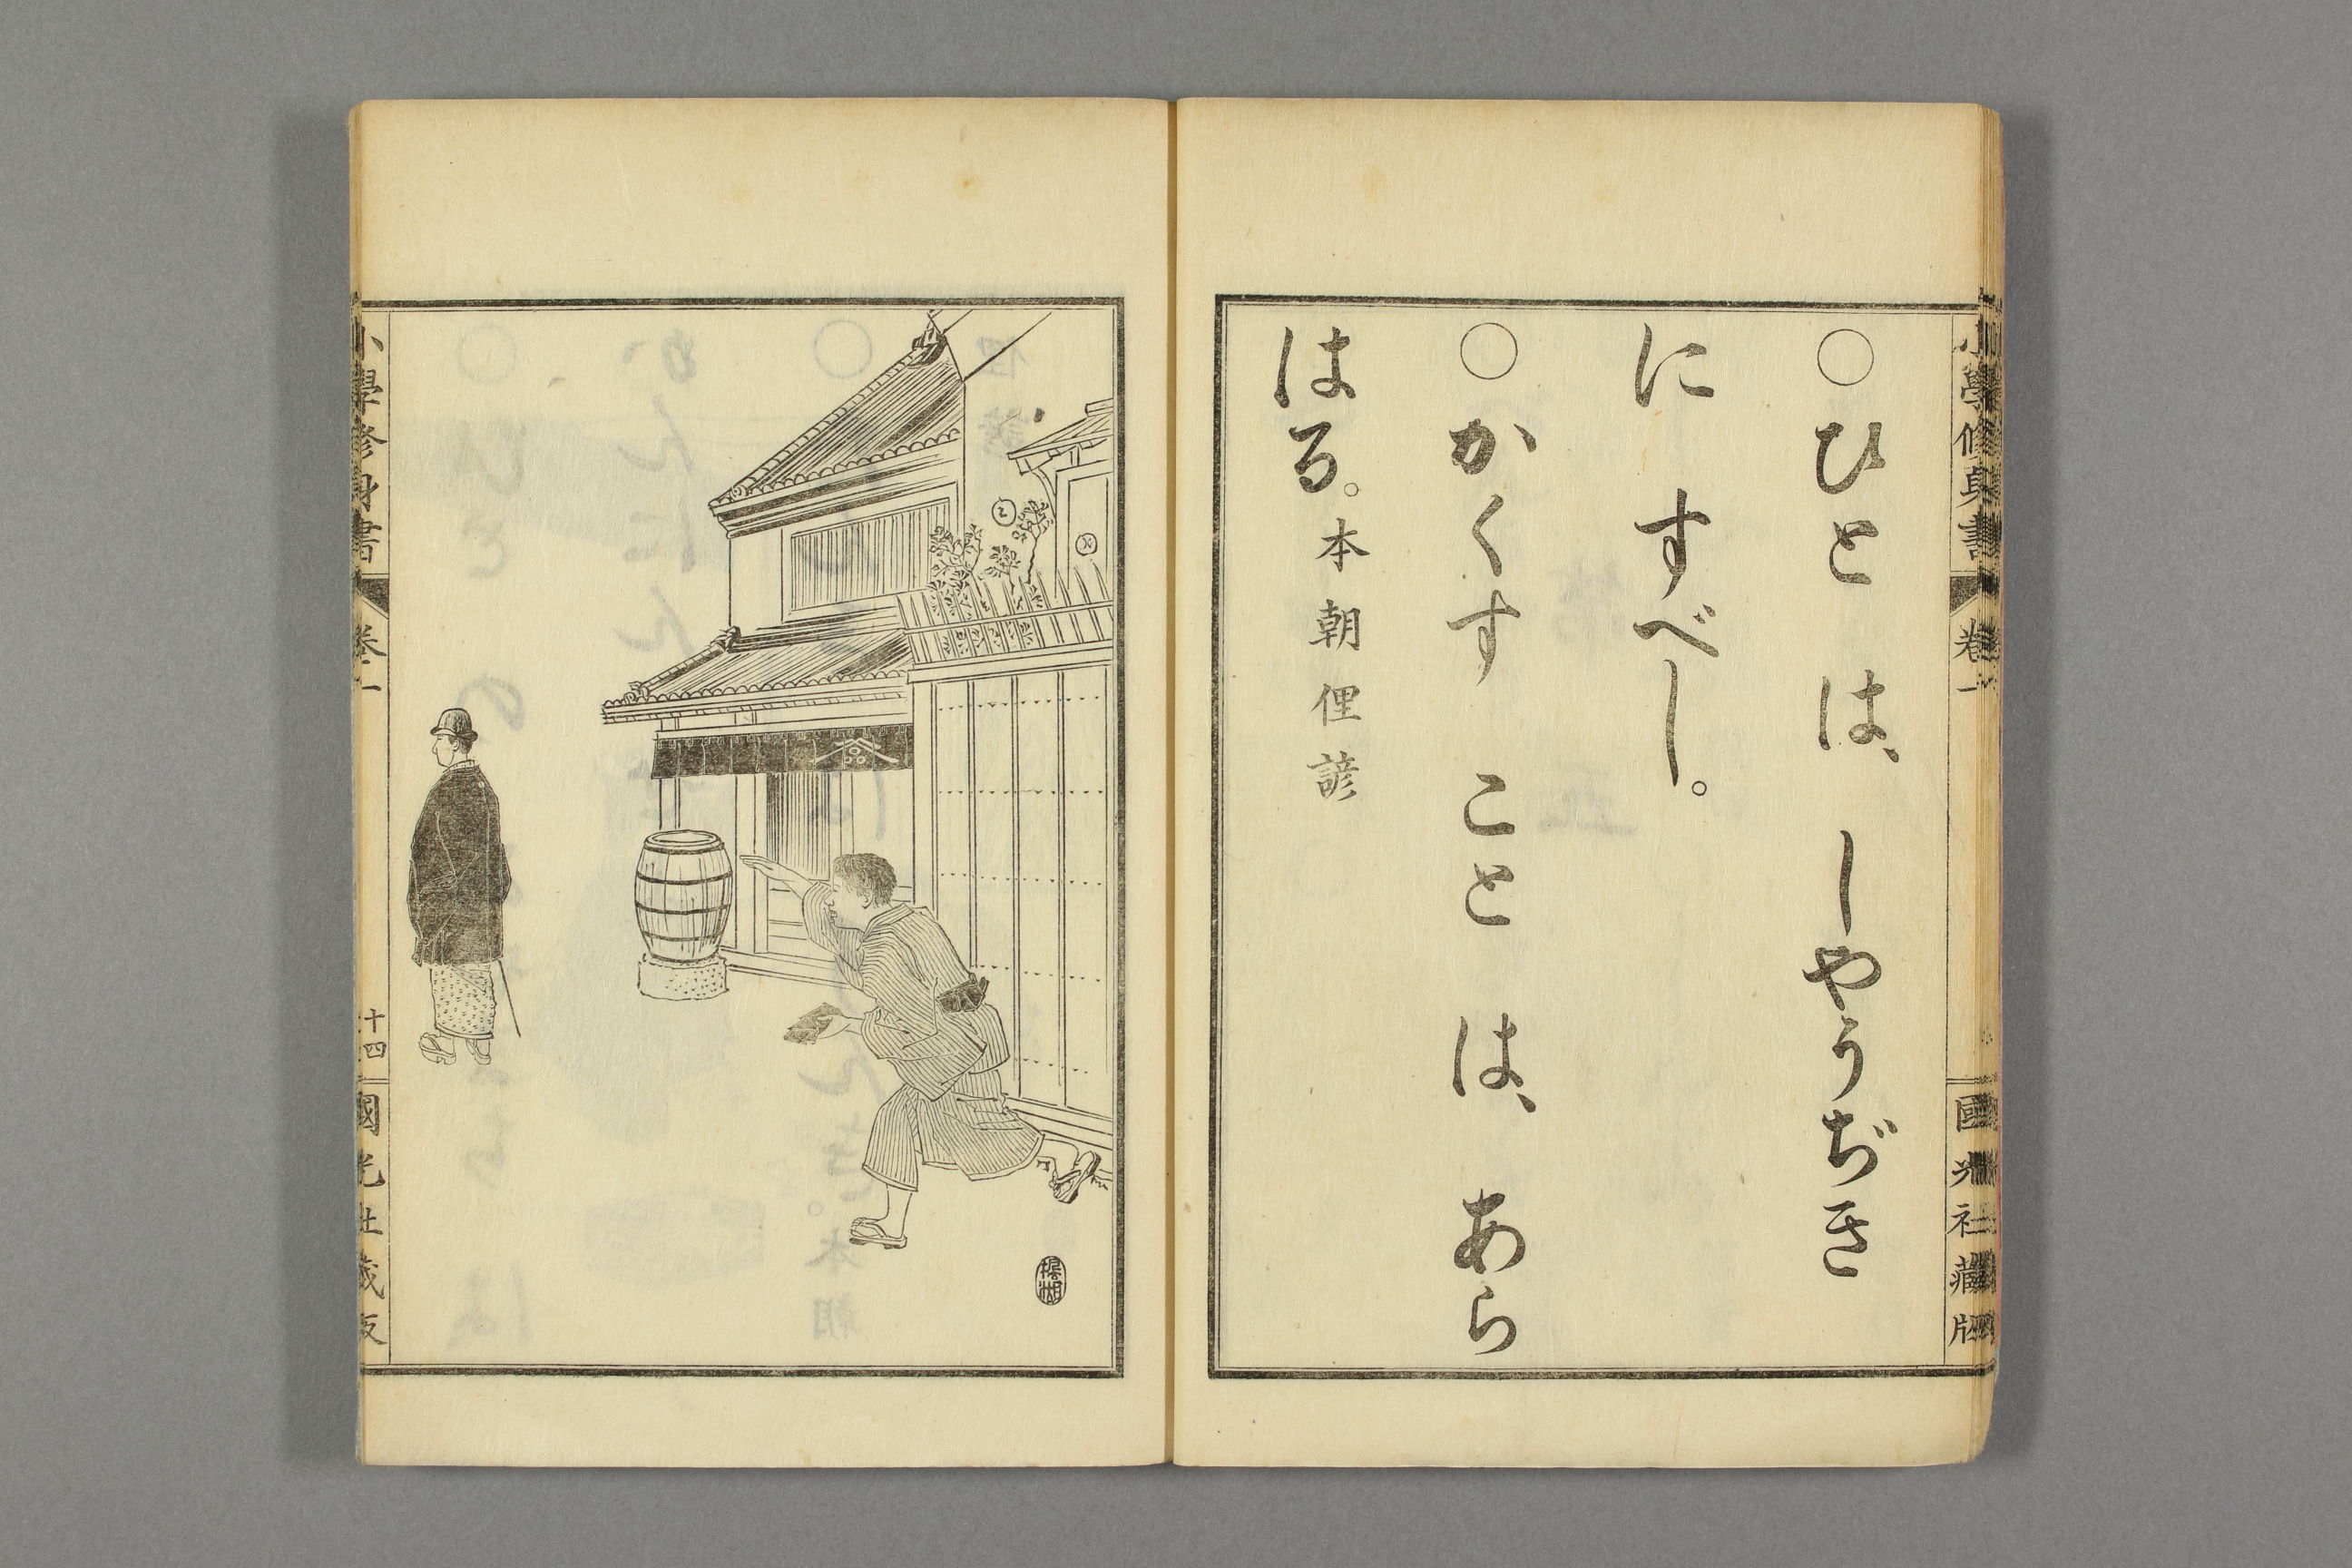 小學修身書 卷一 國光社藏版
○ひと は、 しやうぢき
に すべし。
○かくす こと は、 あら
はる。本朝俚諺
小學修身書 卷一 十四 國光社藏版